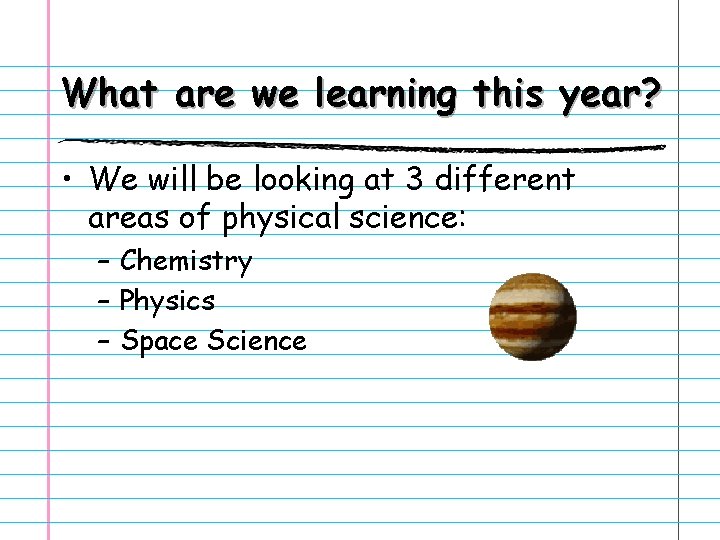 What are we learning this year?
• We will be looking at 3 different
areas of physical science:
– Chemistry
– Physics
– Space Science